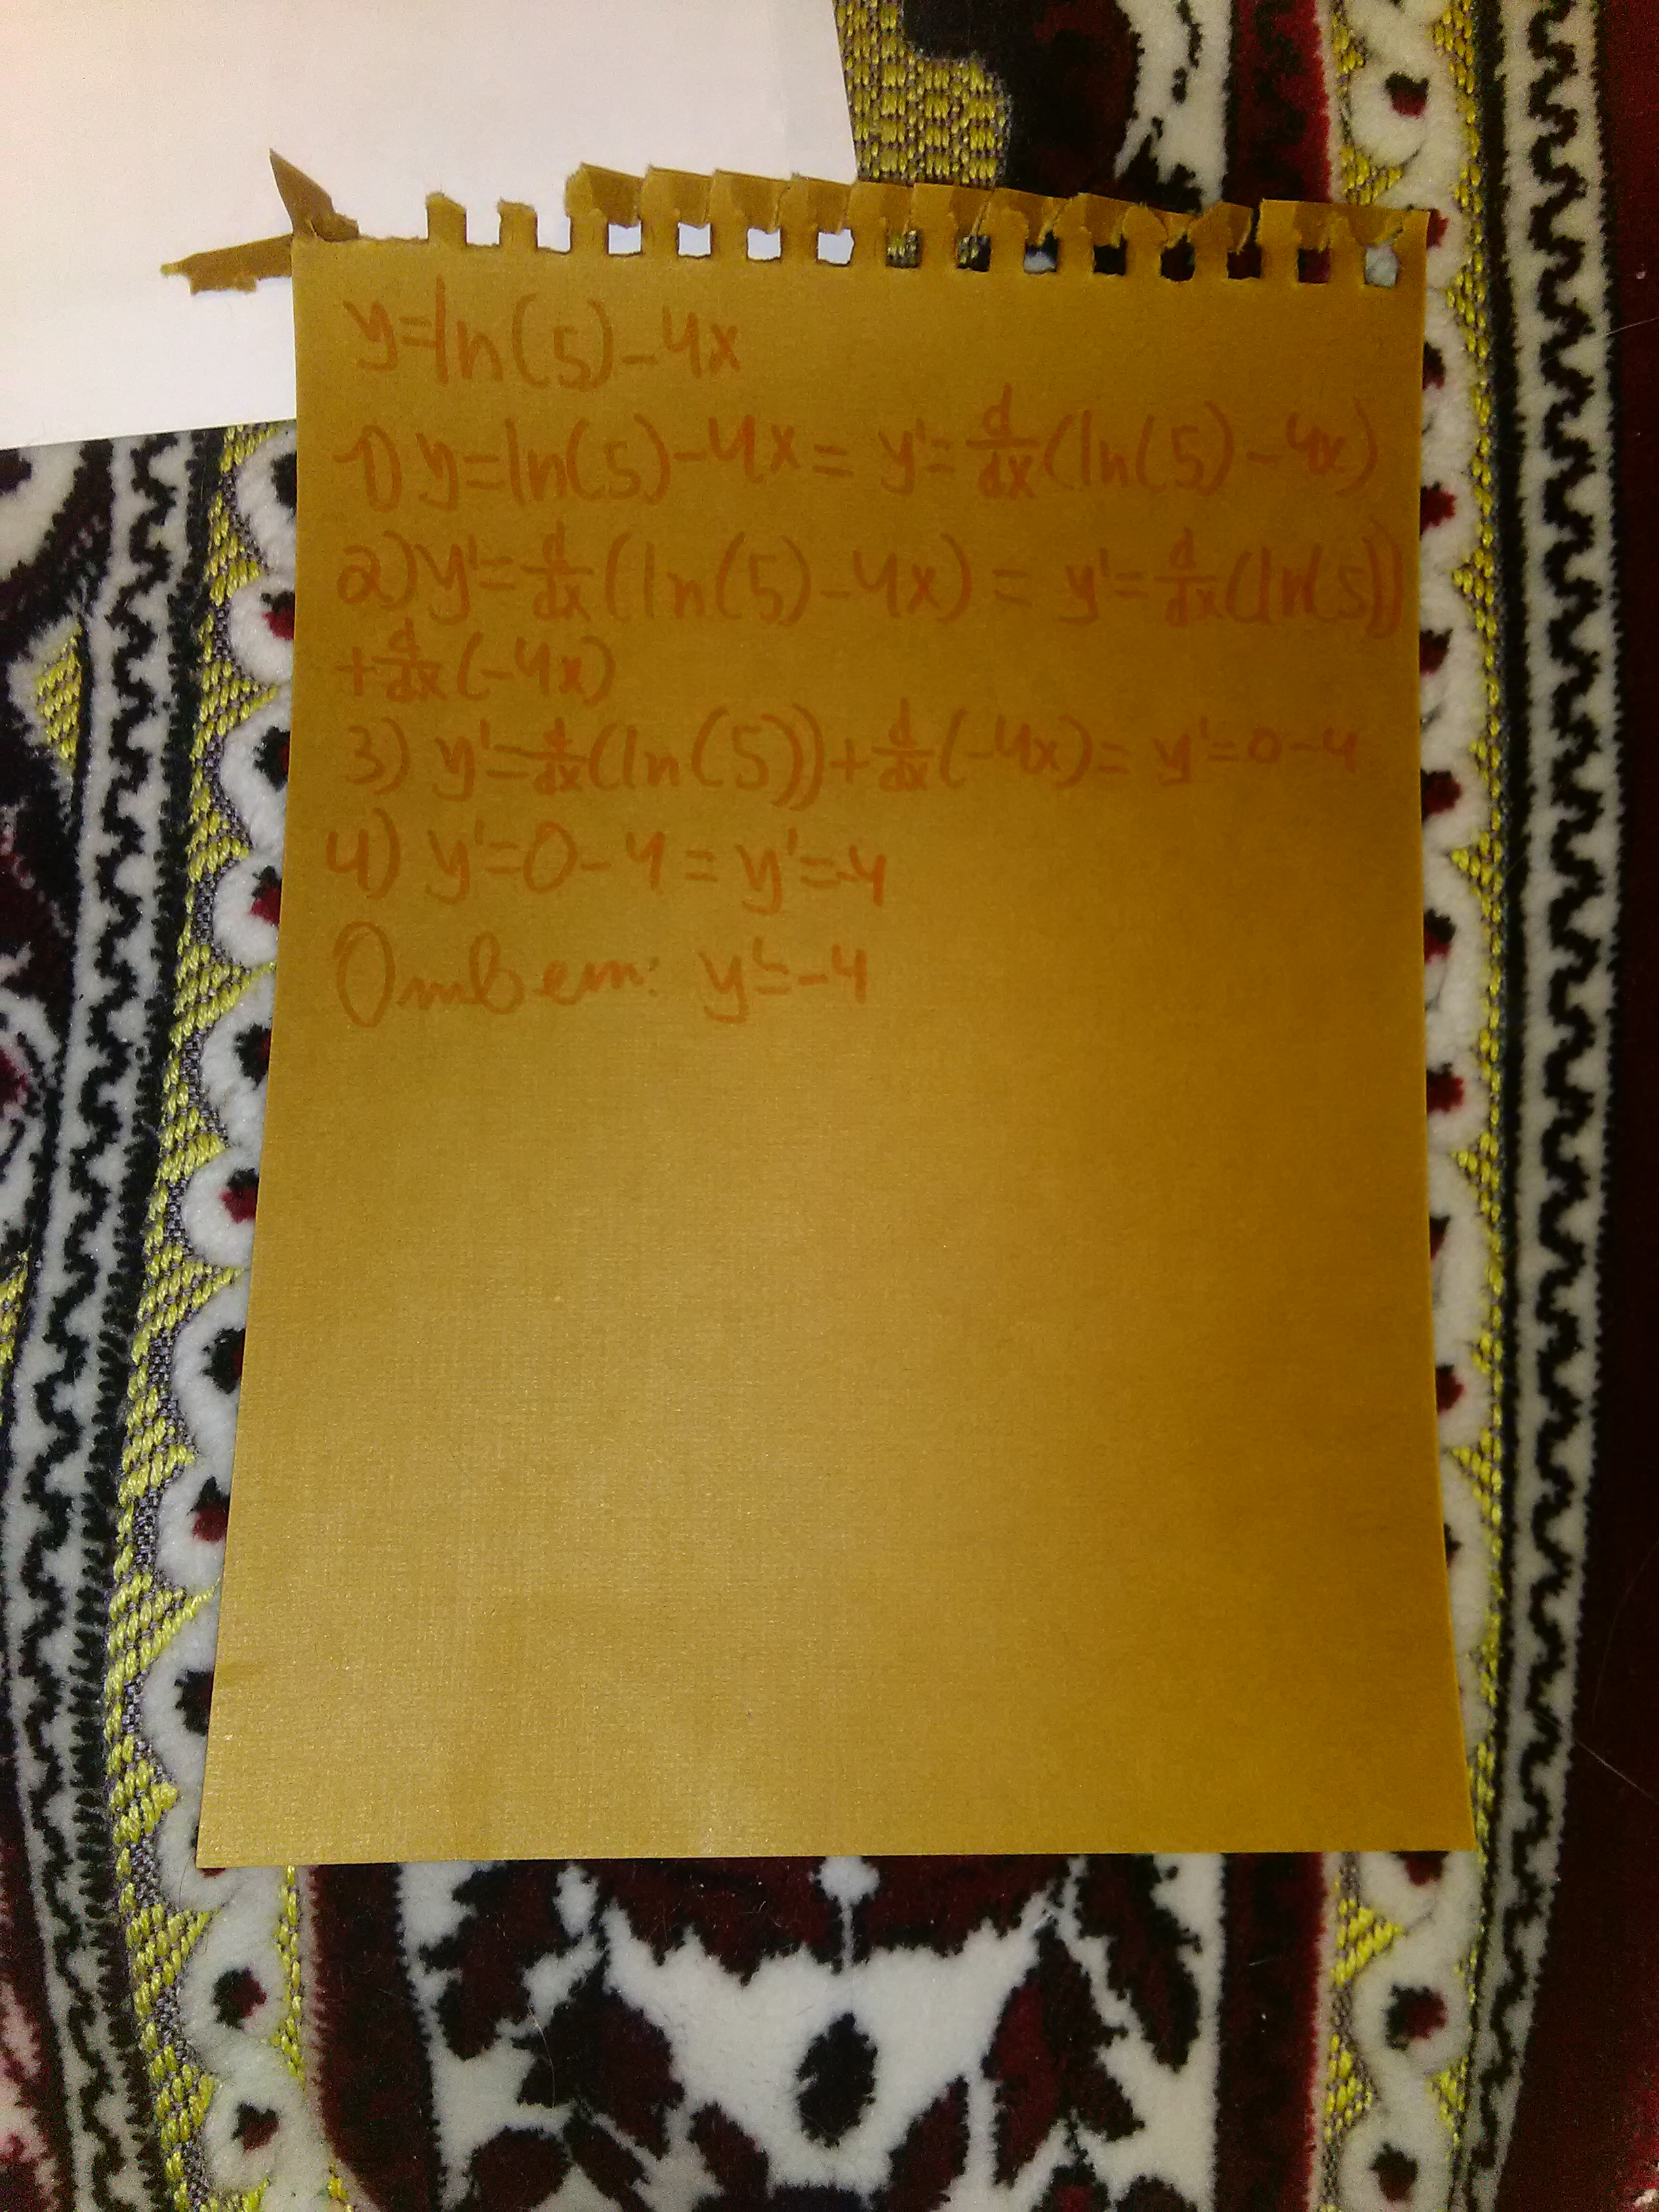 y=ln(5)-4x
1) y=ln(5)-4x= y'=d/dx(ln(5)-4x)
2) y'=d/dx(ln(5)-4x) = y'=d/dx(ln(5))
+d/dx(-4x)
3) y'=d/dx(ln(5))+d/dx(-4x)= y'=0-4
4) y'=0-4= y'=-4
Ответ: y'=-4